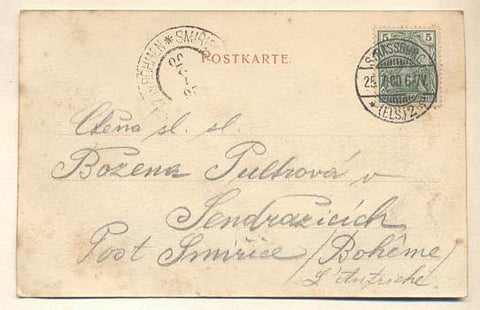 POSTKARTE
5 5
STRASSBURG
25.7.00.6-7V.
*(ELS.)2*
IN BÖHMEN * SMIŘIC
Ctěna sl. sl.
Božena Pultrová v
Sendražicích
Post Smiřice /Bohême/
L'Autriche.